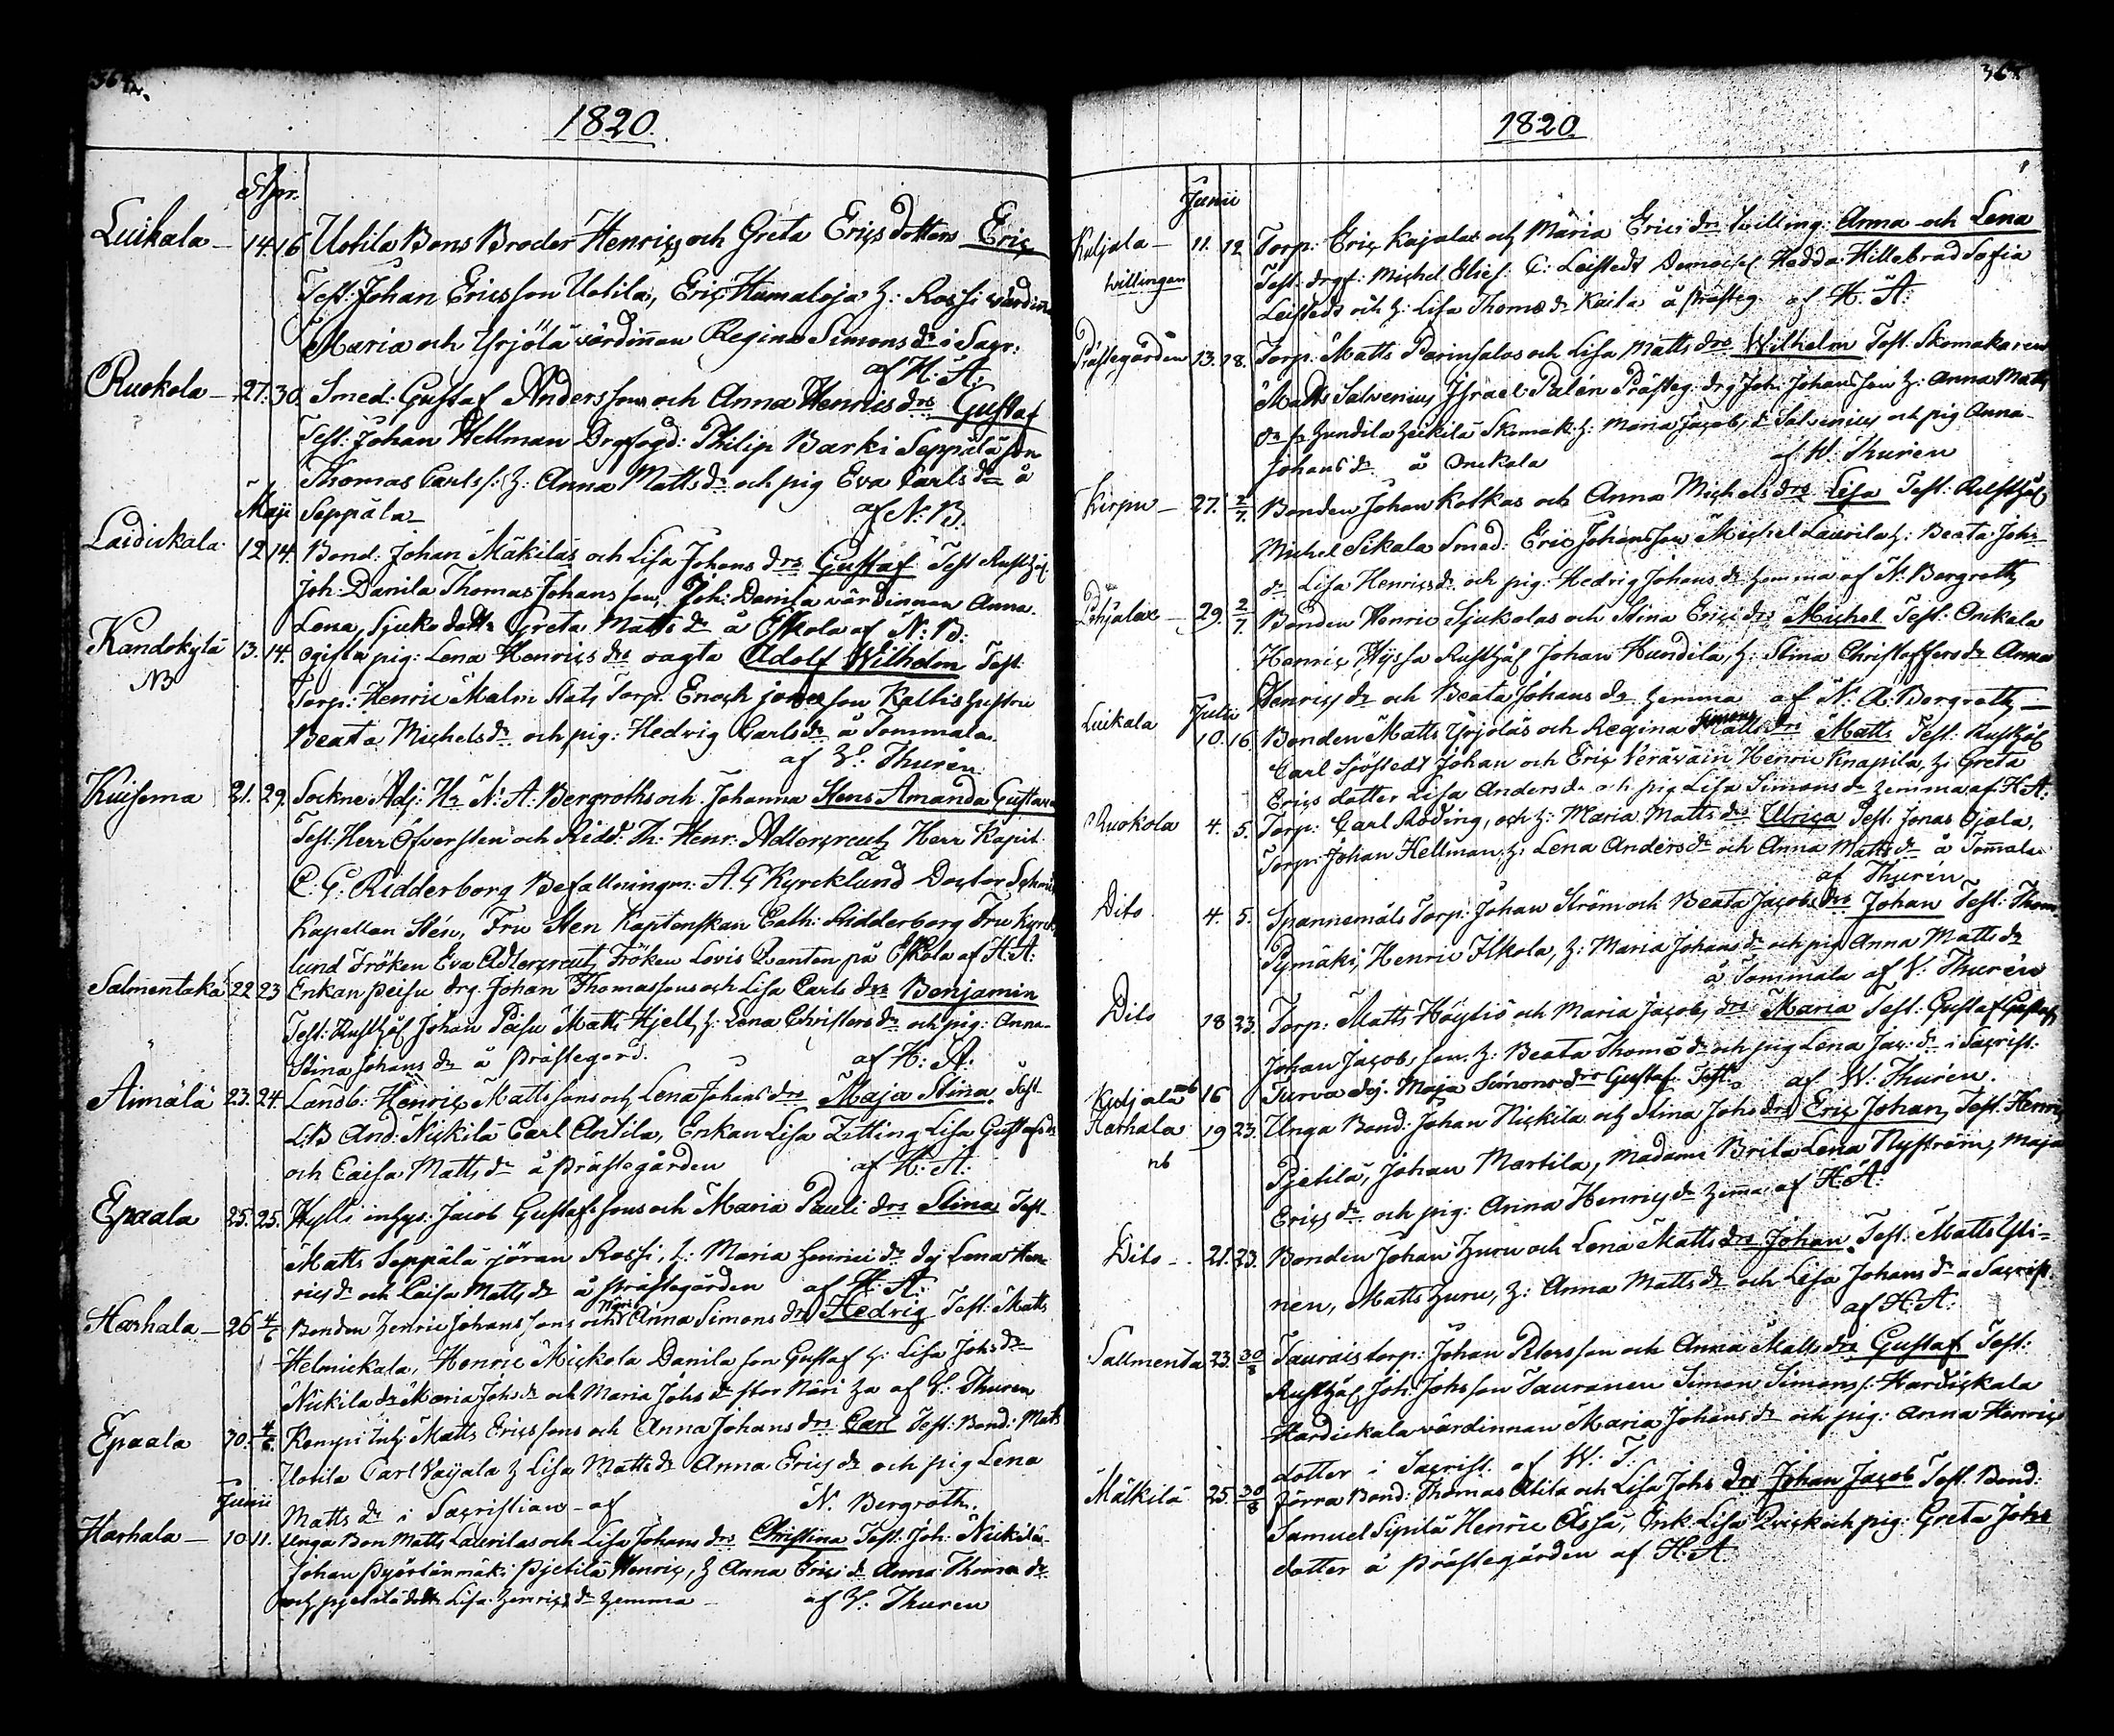 1820.
Apr.
Luikala – 14. 16 Uotila Bons Broder Henrics och Greta Erics dotters Eric
Test: Johan Ericsson Uotila, Eric Humaloja h: Rossi värdin
Maria och Yrjölä värdinnan Regina Simons dr i Sacr:
af H: A:
Ruokola – 27. 30. Smed: Gustaf Andersson och Anna Henrics drs Gustaf
Test: Johan Hellman Drgfogd: Philip Barki Seppälä son
Thomas Carls s: h: Anna Matts dr och pig Eva Carls dr å
Maji Seppälä – af N: B.
Laidickala 12 14. Bond. Johan Mäkiläs och Lisa Johans drs Gustaf Test Rusthål
Joh: Danila Thomas Johansson, Joh: Danila värdinnan Anna
Lena Sjuko dottr Greta Matts dr å Eskola af N: B:
Kandokylä 13. 14. ogifta pig: Lena Henrics drs oägta Adolf Wilhelm Test
NB Torp: Henric Malm Torp. Enoch son Kallis hustru
Beata Michels dr och pig: Hedvig Carls dr å Tommala.
af Thurén
Kuisema 21. 29. Sockne Adj: Hr N: A: Bergroths och Johanna Stens Amanda Gustava
Test: Herr Öfversten och Ridd: Th: Henr: Adlercreutz Herr Kapit
C: G: Ridderborg Befallningm: A. G Kyrcklund Doctor
Kapellan Stén, Fru Sten Kaptenskan Cath: Ridderborg Fru Kyrck
lund Fröken Eva Adlercreutz Fröken Lovis Qvanten på Eskola af H: A:
Salmentaka 22 23 Enkan Peisu drg. Johan Thomassons och Lisa Carls drs Benjamin
Test: Rusthål Johan Peisu Matts Hjelt, h: Lena Christers dr och pig: Anna
Stina Johans dr å Prästegård. af H: A:
Äimälä 23. 24. Landb. Henric Mattssons och Lena Johans drs Maja Stina Test.
L:B And: Nickilä Carl Antila, Enkan Lisa Zitting Lisa Gustafs dr
och Caisa Matts dr å Prästegården af H: A:
Epaala 25. 25. Hylli inhys: Jacob Gustafssons och Maria Pauli drs Stina Test.
Matts Seppälä jöran Rossi, h: Maria Henrics dr dej Lena Hen
rics dr och Caisa Matts dr å Prästegården af H: A:
Harhala – 26 4/6 Bonden Henric Johanssons och Anna Simons drs Hedvig Test: Matts
Helmickala, Henric Mickola Danila son Gustaf h: Lisa Johs dr
Nickila dr Maria Johs dr och Maria Johs dr stor Näri af Thuren
Epaala 30. 4/6. Kempi Inh: Matts Ericssons och Anna Johans drs Carl Test: Bond: Matts
Uotila Carl Vaijala h Lisa Matts dr Anna Erics dr och pig Lena
Junii Matts dr i Sacristian – af N. Bergroth.
Harhala – 10 11. Unga Bon Matts Laurilas och Lisa Johans drs Christina Test: Joh: Nickilä
Johan Pyörtänmäki Pjetilä Henric, h Anna Erics dr Anna Thomæ dr
och pjetilä dottr Lisa Henrics dr hemma – af Thuren
1820
Junii
Kutjala – 11. 12 Torp: Eric Kajalas och Maria Erics drs tvilling: Anna och Lena
tvillingar Test: drgf: Michel Elief: C: Leistedt Demoisel Hedda Hillebrad Sofia
Leistedt och h: Lisa Thomæ dr Kaila å Prästeg: af H. A:
Prästegården 13. 18. Torp: Matts Parinsalos och Lisa Matts drs Wilhelm Test. Skomakaren
Matts Salvenius Israel Palén Prästeg: drg Joh: Johansson h: Anna Matts
dr Hundila Heickilä Skomak: h: Maria Jacobs dr Salvenius och pig Anna
Johans dr å Onckala af W: Thurén
Kirpu – 27. 2/7. Bonden Johan Kolkas och Anna Michels drs Lisa Test: Rusthål
Michel Sikala Smed: Eric Johansson Michel Laurila h: Beata Johs
dr Lisa Henrics dr och pig: Hedvig Johans dr hemma af N. Bergroth
Pohjala – 29. 2/7. Bonden Henric Sjukolas och Stina Erics drs Michel Test: Onckala
Henric Hyssa Rusthål Johan Hundila, h: Stina Christoffers dr Anna
Henrics dr och Beata Johans dr hemma af N: A: Bergroth –
Luikala Julii 10. 16. Bonden Matts Yrjöläs och Regina Simons Matts drs Matts Test: Rusthål
Carl Sjöstedt Johan och Eric Veräväin Henric Knapila, h: Greta
Erics dotter Lisa Anders dr och pig Lisa Simons dr hemma af H: A:
Ruokola 4. 5. Torp: Carl Roding, och h: Maria Matts drs Ulrica Test: Jonas Ojala,
Torp: Johan Hellman h: Lena Anders dr och Anna Matts dr å Tommala
af Thurén
Dito 4. 5. Spannemåls Torp: Johan Ström och Beata Jacobs drs Johan Test: Thom
Pymäki, Henric Ilkola, h: Maria Johans dr och pig Anna Matts dr
å Tommala af V: Thurén
Dito 18 23. Torp: Matts Höytiö och Maria Jacobs drs Maria Test: Gustaf Gustafs
Johan Jacobsson h: Beata Thomæ dr och pig Lena Jac: dr i Sacrist:
Kutjala nb 16 Turva dej. Maja Simons drs Gustaf Test. af W: Thurén.
Harhala 19 23. Unga Bond: Johan Nickilä och Stina Johs drs Eric Johan, Test. Henric
nb Pjetilä, Johan Martila, Madame Brita Lena Nyström, Maja
Erics dr och pig: Anna Henrics dr hema af H: A:
Dito – 21. 23. Bonden Johan Huru och Lena Matts drs Johan Test: Matts Yli=
nen, Matts Huru, h: Anna Matts dr och Lisa Johans dr Sacrist
af H: A:
Sallmenta 23. 30/8 Taurais torp: Johan Petersson och Anna Matts drs Gustaf Test:
Rusthål Joh: Johsson Tauranen Simon Simons s: Hardickala
Hardickala värdinnan Maria Johans dr och pig: Anna Henrics
dotter i Sacrist. af W: T.
Mälkilä 25. 30/8 Jörra Bond: Thomas Atila och Lisa Johs drs Johan Jacob Test. Bond:
Samuel Sipilä Henric Ässä, Enk: Lisa Qvick och pig: Greta Johs
dotter å Prästegården af H: A